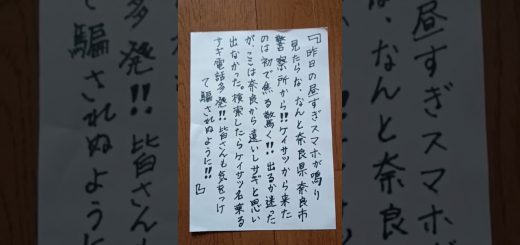 「昨日の昼すぎスマホが鳴り
見たらな、なんと奈良県奈良市
警察所から!!ケイサツから来た
のは初で焦る驚く!!出るか迷った
が、ここは奈良から遠いしサギと思い
出なかった。検索したらケイサツ名乗る
サギ電話多発!!皆さんも気をつけ
て騙されぬように!!」